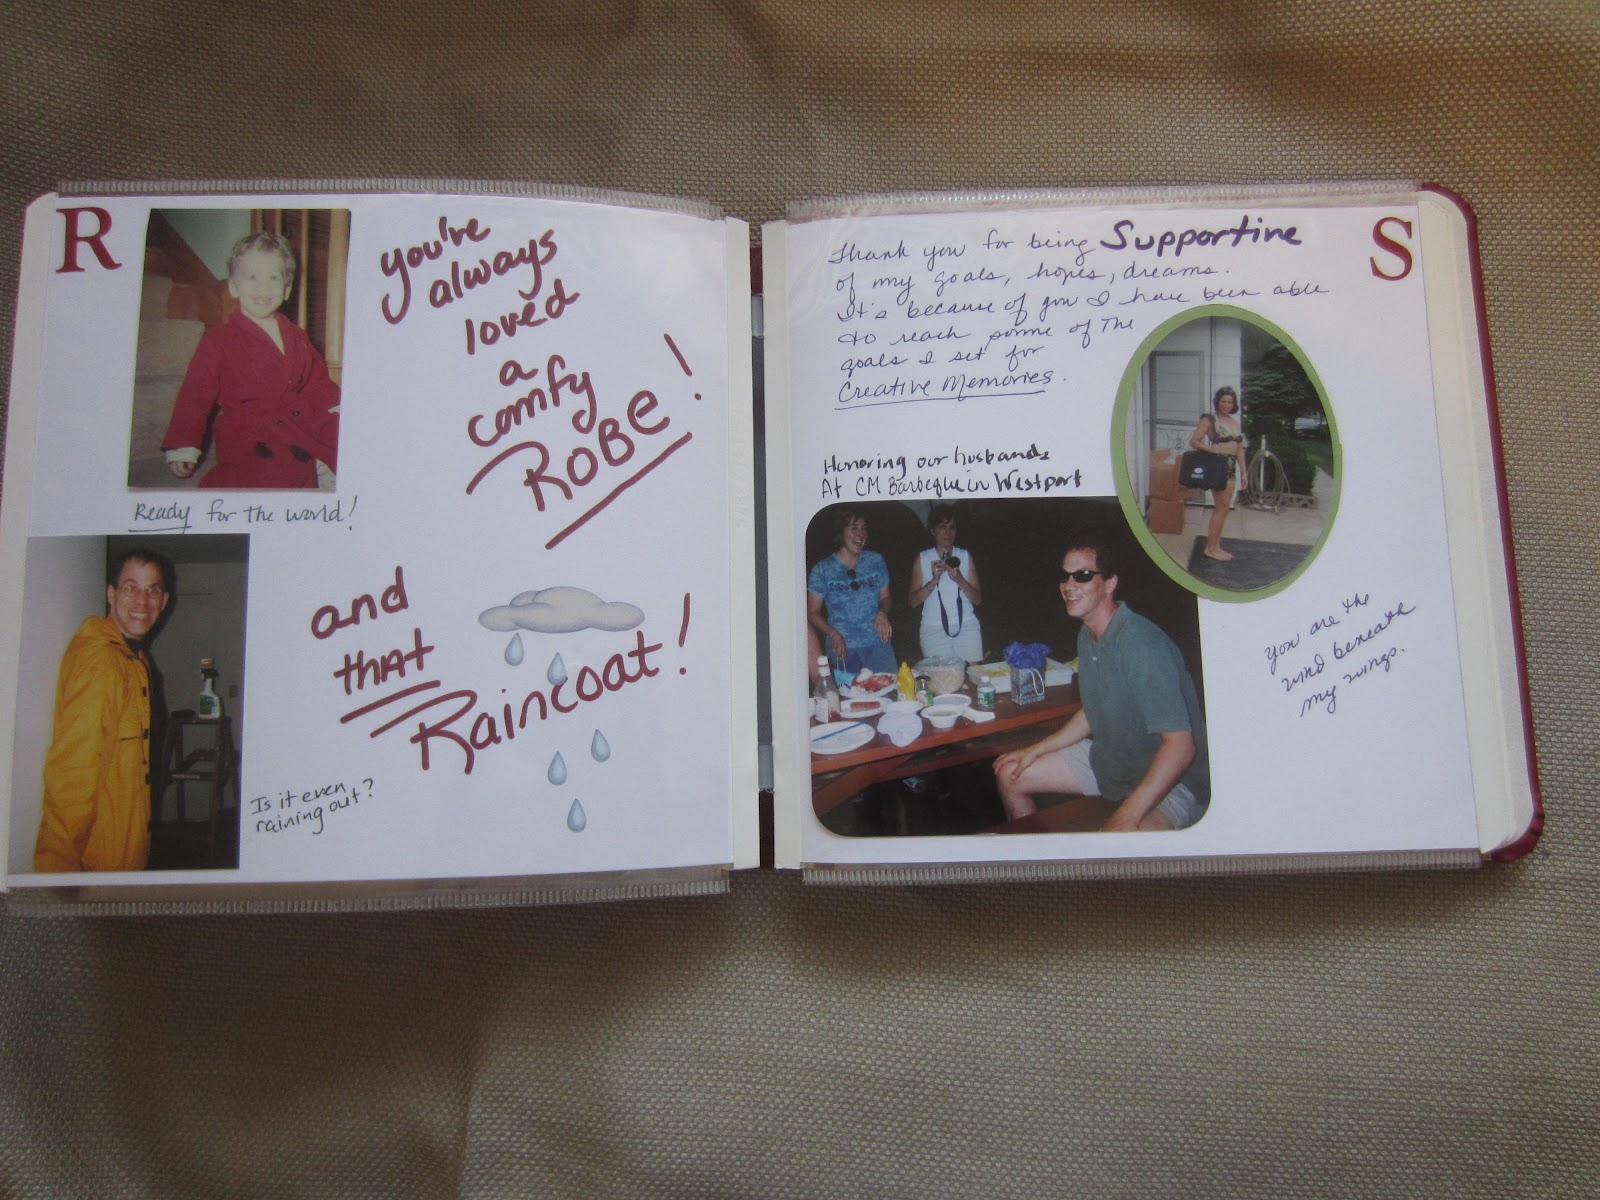 R
you're
always
loved
a
comfy
ROBE!
Ready for the world!
and
that
Raincoat!
Is it even
raining out?
S
Thank you for being Supportive
of my goals, hopes, dreams.
It's because of you I have been able
to reach some of the
goals I set for
Creative Memories.
Honoring our husbands
At CM Barbeque in Westport
You are the
wind beneath
my wings.